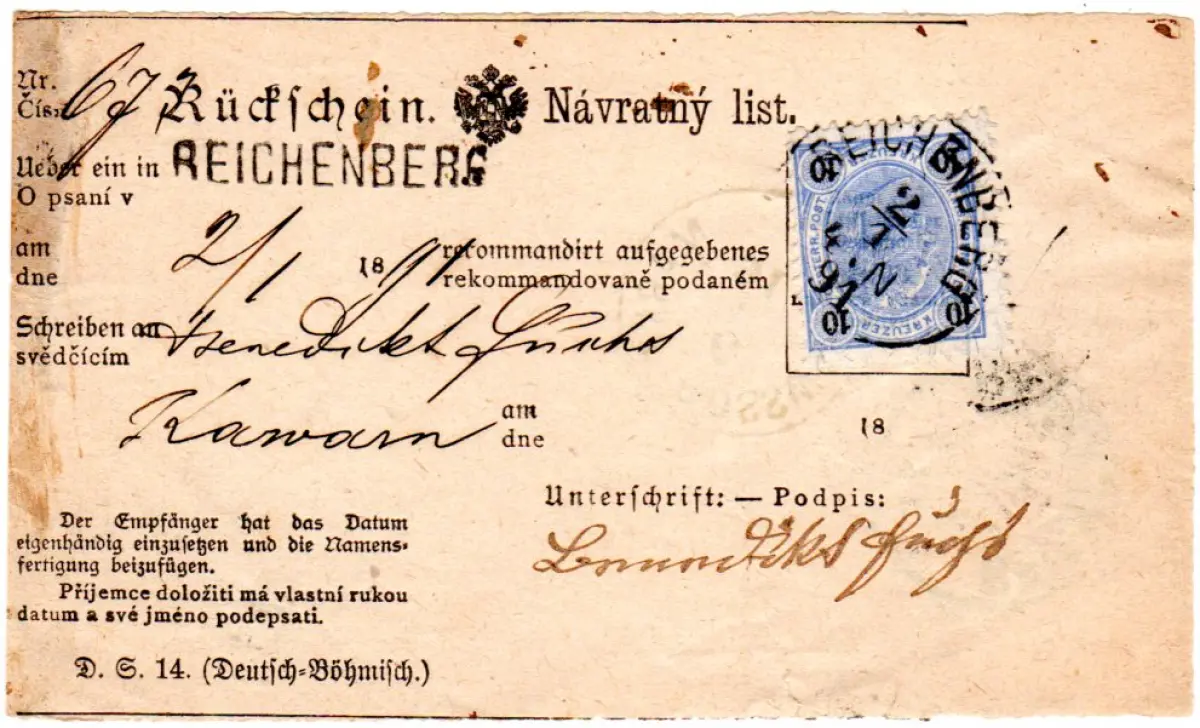 Nr.
Čís. 673
Rückschein. Návratný list.
Ueber ein in REICHENBERG
O psaní v
am
dne 2/1 1891
recommandirt aufgegebenes
rekommandovaně podaném
Schreiben an
svědčícím Benedikt Fuchs
Kawarn
am
dne 18
Unterschrift: — Podpis:
Benedikt Fuchs
Der Empfänger hat das Datum
eigenhändig einzusetzen und die Namens-
fertigung beizufügen.
Příjemce doložiti má vlastní rukou
datum a své jméno podepsati.
D. S. 14. (Deutsch-Böhmisch.)
REICHENBERG
10 10
10 10
KREUZER